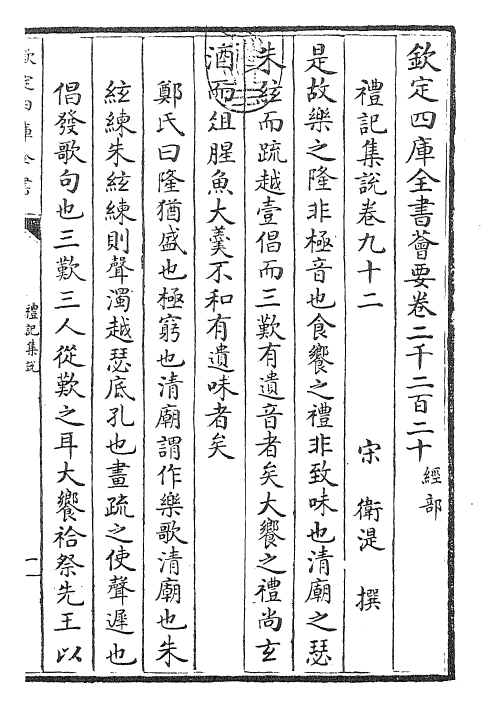 欽定四庫全書薈要卷二千二百二十 經部
禮記集說卷九十二
宋 衛湜 撰
是故樂之隆非極音也食饗之禮非致味也清廟之瑟
朱絃而疏越壹倡而三歎有遺音者矣大饗之禮尚玄
酒而俎腥魚大羹不和有遺味者矣
鄭氏曰隆猶盛也極窮也清廟謂作樂歌清廟也朱
絃練朱絃練則聲濁越瑟底孔也畫疏之使聲遲也
倡發歌句也三歎三人從歎之耳大饗祫祭先王以
欽定四庫全書
禮記集說
一